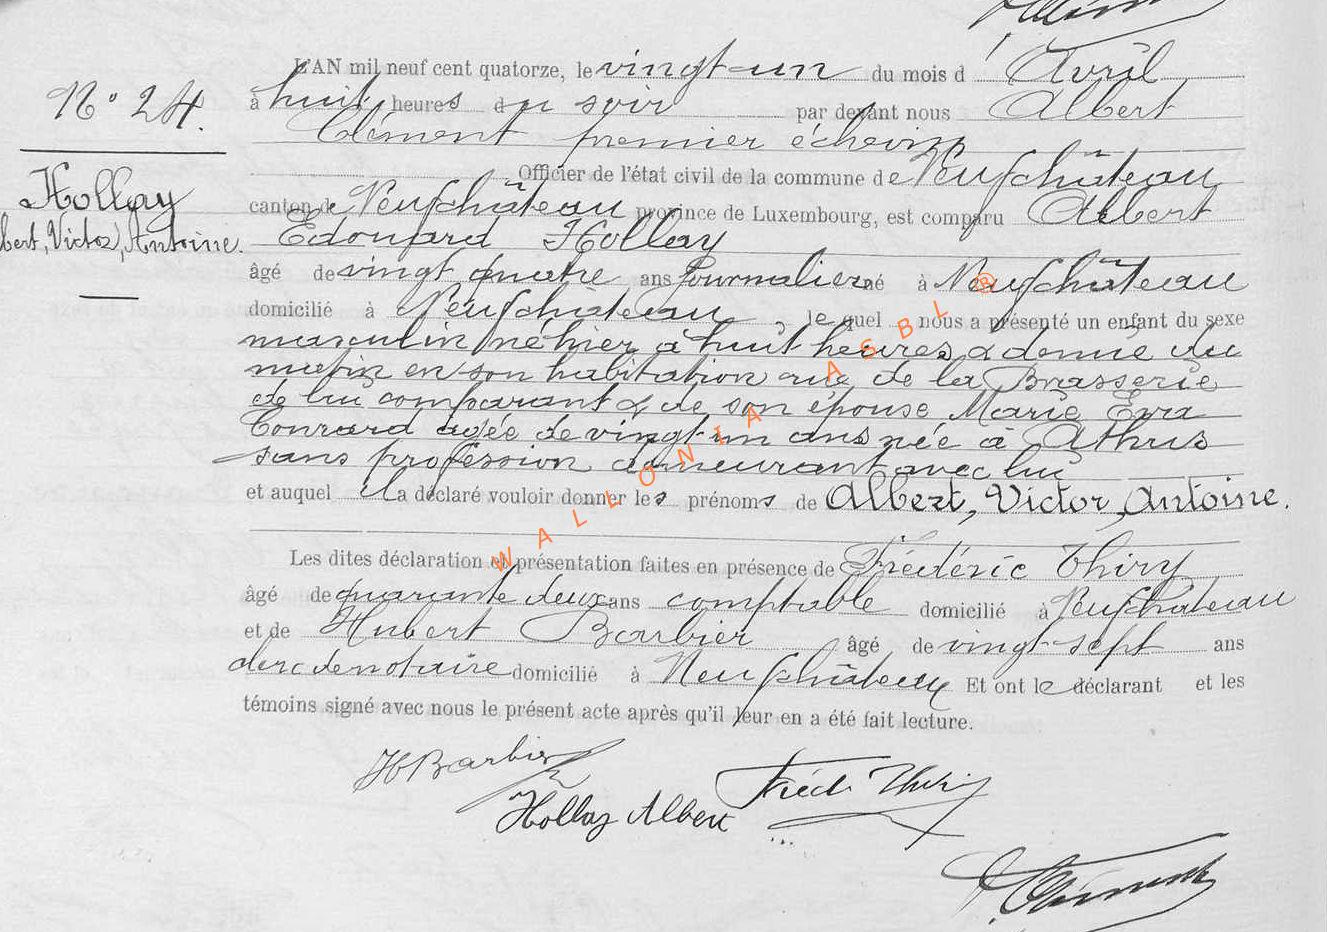 N° 24.
Hollay
bert, Victor, Antoine.
L'AN mil neuf cent quatorze, le vingt-un du mois d' Avril
à huit heures du soir par devant nous Albert
Clément premier échevin
Officier de l'état civil de la commune de Neufchâteau
canton de Neufchâteau province de Luxembourg, est comparu Albert
Edouard Hollay
âgé de vingt quatre ans journalier né à Neufchâteau
domicilié à Neufchâteau lequel nous a présenté un enfant du sexe
masculin né hier à huit heures & demie du
matin en son habitation rue de la Brasserie
de lui comparant & de son épouse Marie Eva
Conrard agée de vingt-un ans née à Athus
sans profession demeurant avec lui
et auquel il a déclaré vouloir donner les prénoms de Albert, Victor, Antoine.
Les dites déclaration et présentation faites en présence de Frédéric Thiry
âgé de quarante deux ans comptable domicilié à Neufchâteau
et de Hubert Barbier âgé de vingt-sept ans
clerc de notaire domicilié à Neufchâteau Et ont le déclarant et les
témoins signé avec nous le présent acte après qu'il leur en a été fait lecture.
HBarbier
Hollay Albert
Fréd. Thiry
A. Clément
WALLONIA ASBL ®